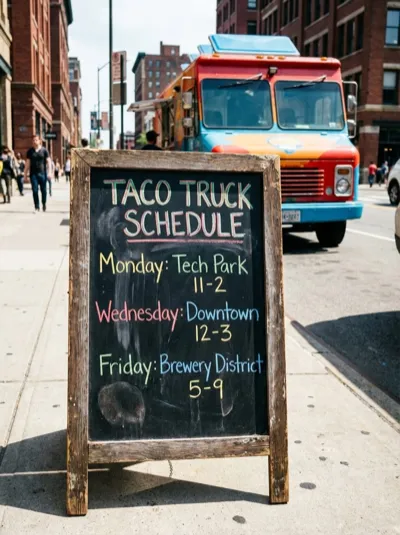 TACO TRUCK
SCHEDULE
Monday: Tech Park
11-2
Wednesday: Downtown
12-3
Friday: Brewery District
5-9